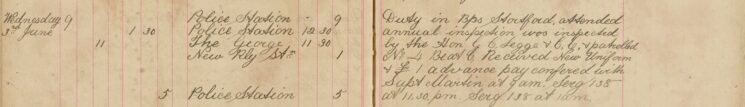 Wednesday 9 Police Station - 9 Duty in Bps Stortford, attended
3rd June 1 30 Police Station 12 30 annual inspection was inspected
11 The George 11 30 by the Hon G C Legge & C. C. & patrolled
New Rly Stn 1 No 4 Beat C Received New Uniform
& £1 advance pay confered with
Supt Martin at 9am. Serg 138
5 Police Station 5 at 11.30.pm. Serg 138 at 1am.